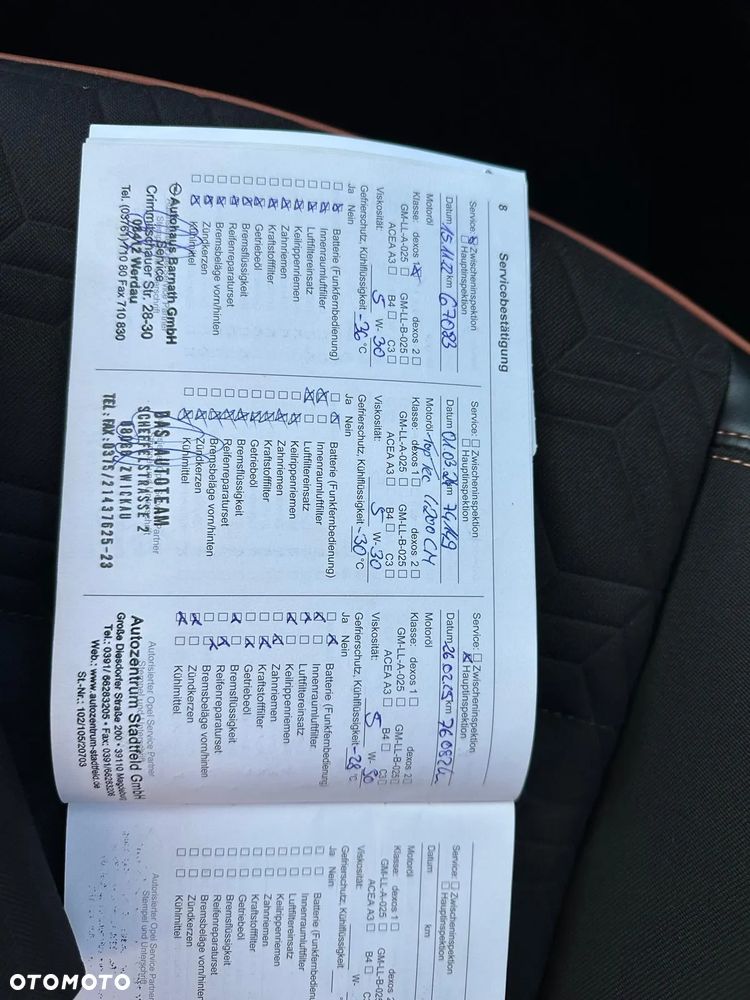 8
Servicebestätigung
Service: Zwischeninspektion
Hauptinspektion
Datum 15.11.22 km 67083
Motoröl
Klasse: dexos 1 dexos 2
GM-LL-A-025 GM-LL-B-025
ACEA A3 B4 C3
Viskosität: 5 W- 30
Gefrierschutz, Kühlflüssigkeit -36 °C
Ja Nein
Batterie (Funkfernbedienung)
Innenraumluftfilter
Luftfiltereinsatz
Keilrippenriemen
Zahnriemen
Kraftstofffilter
Getriebeöl
Bremsflüssigkeit
Reifenreparaturset
Bremsbeläge vorn/hinten
Zündkerzen
Kühlmittel
Autohaus Barnath GmbH
Service
Crimmitschauer Str. 28-30
08412 Werdau
Tel. (03761) 710 80 Fax 710 830
Service: Zwischeninspektion
Hauptinspektion
Datum 01.03.24 km 74149
Motoröl Top Tec 4200 CM
Klasse: dexos 1 dexos 2
GM-LL-A-025 GM-LL-B-025
ACEA A3 B4 C3
Viskosität: 5 W- 30
Gefrierschutz, Kühlflüssigkeit -30 °C
Ja Nein
Batterie (Funkfernbedienung)
Innenraumluftfilter
Luftfiltereinsatz
Keilrippenriemen
Zahnriemen
Kraftstofffilter
Getriebeöl
Bremsflüssigkeit
Reifenreparaturset
Bremsbeläge vorn/hinten
Zündkerzen
Kühlmittel
Partner
DAS AUTOTEAM
SCHEFFELSTRASSE 2
ZWICKAU
TEL./FAX: 0375/21431625-23
Service: Zwischeninspektion
Hauptinspektion
Datum 26.02.25 km 76082
Motoröl
Klasse: dexos 1 dexos 2
GM-LL-A-025 GM-LL-B-025
ACEA A3 B4 C3
Viskosität: 5 W- 30
Gefrierschutz, Kühlflüssigkeit -28 °C
Ja Nein
Batterie (Funkfernbedienung)
Innenraumluftfilter
Luftfiltereinsatz
Keilrippenriemen
Zahnriemen
Kraftstofffilter
Getriebeöl
Bremsflüssigkeit
Reifenreparaturset
Bremsbeläge vorn/hinten
Zündkerzen
Kühlmittel
Autorisierter Opel Service Partner
Autozentrum Stadtfeld GmbH
Große Diesdorfer Straße 200 • 39110 Magdeburg
Tel.: 0391/ 66283205 • Fax: 0391/66283206
Web.: www.autozentrum-stadtfeld.de
St.-Nr.: 102/105/20703
Service: Zwischeninspektion
Hauptinspektion
Datum km
Motoröl
Klasse: dexos 1 dexos
GM-LL-A-025 GM-LL-B-025
ACEA A3 B4 C3
Viskosität: W-
Gefrierschutz, Kühlflüssigkeit
Ja Nein
Batterie (Funkfernbedienung)
Innenraumluftfilter
Luftfiltereinsatz
Keilrippenriemen
Zahnriemen
Kraftstofffilter
Getriebeöl
Bremsflüssigkeit
Reifenreparaturset
Bremsbeläge vorn/hinten
Zündkerzen
Kühlmittel
Autorisierter Opel Service Partner
Stempel und Unterschrift
OTOMOTO